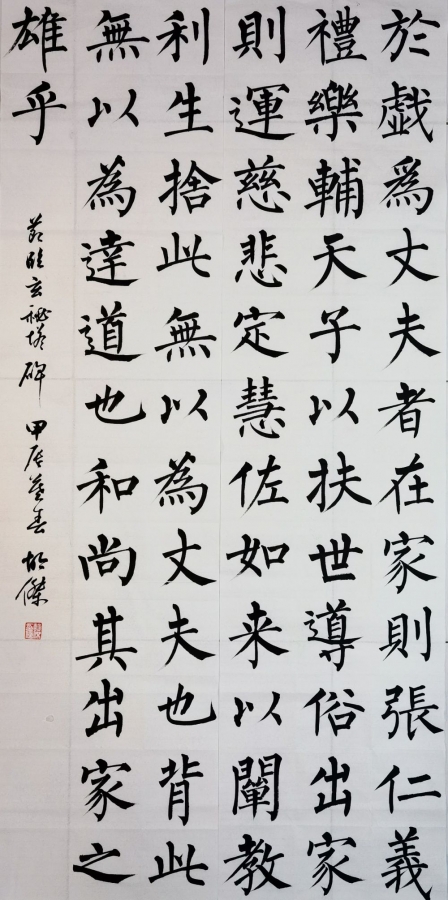 於戯爲丈夫者在家則張仁義
禮樂輔天子以扶世導俗出家
則運慈悲定慧佐如来以闡教
利生捨此無以為丈夫也背此
無以為達道也和尚其出家之
雄乎
節臨玄秘塔碑 甲辰暮春 傑